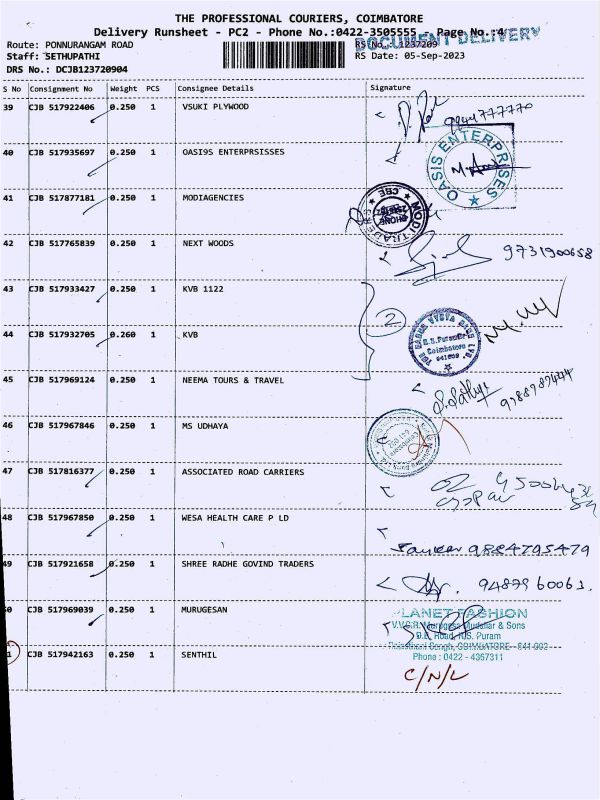 THE PROFESSIONAL COURIERS, COIMBATORE
Delivery Runsheet - PC2 - Phone No.:0422-3505555 Page No.:4
DOCUMENT DELIVERY
Route: PONNURANGAM ROAD RS No.: 1237209
Staff: SETHUPATHI RS Date: 05-Sep-2023
DRS No.: DCJB123720904
S No Consignment No Weight PCS Consignee Details Signature
39 CJB 517922406 0.250 1 VSUKI PLYWOOD
40 CJB 517935697 0.250 1 OASI9S ENTERPRSISSES
OASIS ENTERPRISES
41 CJB 517877181 0.250 1 MODIAGENCIES
MODI TRADERS
CBE
PHONE
42 CJB 517765839 0.250 1 NEXT WOODS 9731900658
43 CJB 517933427 0.250 1 KVB 1122
2
44 CJB 517932705 0.260 1 KVB
THE KARUR VYSYA BANK LTD.
R.S.Puram
Coimbatore
641002
45 CJB 517969124 0.250 1 NEEMA TOURS & TRAVEL
46 CJB 517967846 0.250 1 MS UDHAYA
47 CJB 517816377 0.250 1 ASSOCIATED ROAD CARRIERS
48 CJB 517967850 0.250 1 WESA HEALTH CARE P LD
9884795479
49 CJB 517921658 0.250 1 SHREE RADHE GOVIND TRADERS
9487960061.
50 CJB 517969039 0.250 1 MURUGESAN
PLANET FASHION
V.V.C.R. Murugesa Mudaliar & Sons
D.B. Road, R.S. Puram
COIMBATORE - 641 002
Phone : 0422 - 4367311
1 CJB 517942163 0.250 1 SENTHIL
C/N/L